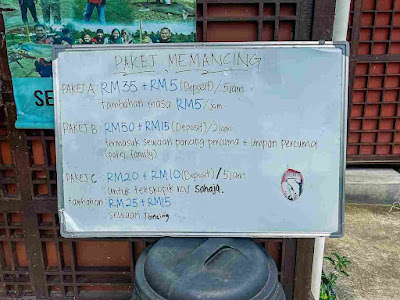 SE
PAKEJ MEMANCING
PAKEJ A : RM35 + RM5 (Deposit) / 5jam
tambahan masa RM5 / jam
PAKEJ B : RM50 + RM15 (Deposit) / 2jam
termasuk sewaan pancing percuma + umpan percuma
(pakej family)
PAKEJ C : RM20 + RM10 (Deposit) / 5jam
untuk teleskopik rod sahaja.
tambahan : RM25 + RM15
sewaan Pancing